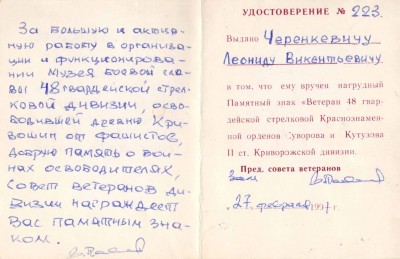 За большую и актив-
ную работу в организа-
ции и функционирова-
нии Музея боевой сла-
вы 48 гвардейской стрел-
ковой дивизии, осво-
бодившей древню Кри-
вошин от фашистов,
добрую память о вои-
нах освободителях,
Совет ветеранов ди-
визии награждает
Вас памятным зна-
ком.
УДОСТОВЕРЕНИЕ № 223.
Выдано Черенкевичу
Леониду Викентьевичу
в том, что ему вручен нагрудный
Памятный знак «Ветеран 48 гвар-
дейской стрелковой Краснознамен-
ной орденов Суворова и Кутузова
II ст. Криворожской дивизии.
Пред. совета ветеранов
Зам
„27" февраля 1997 г.